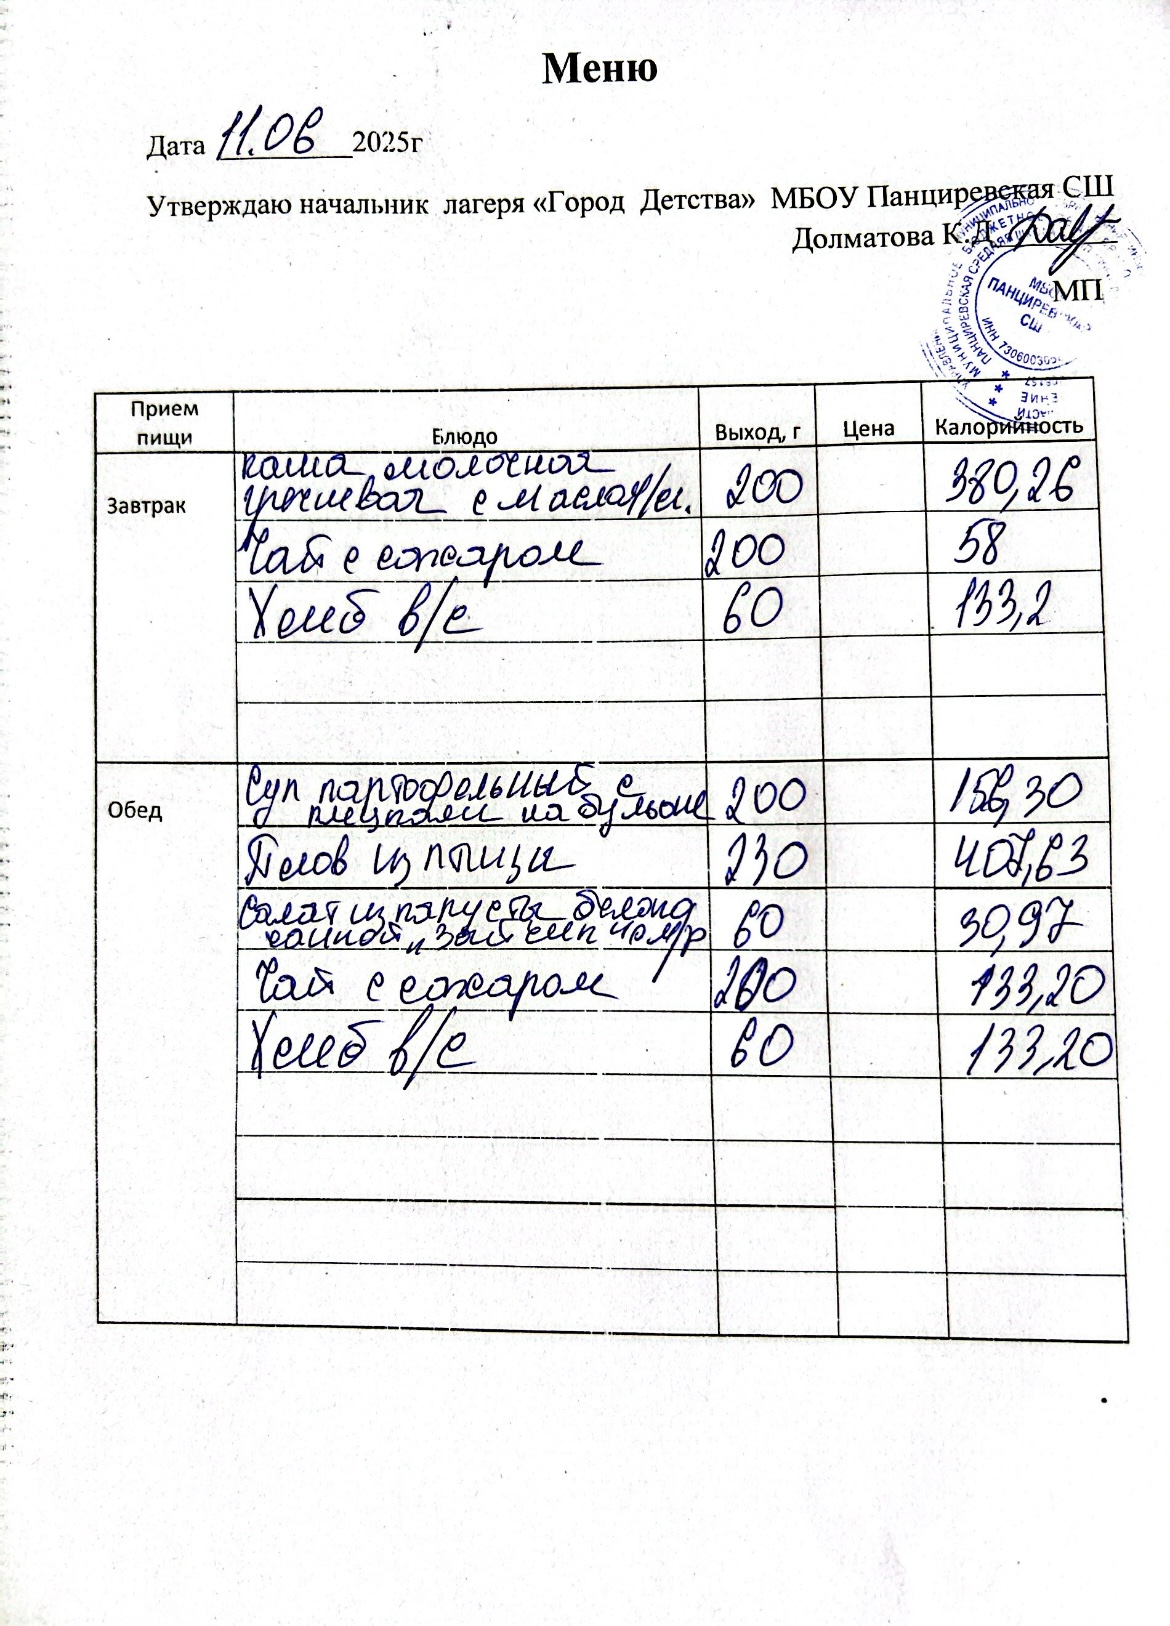 Меню
Дата 11.06 2025г
Утверждаю начальник лагеря «Город Детства» МБОУ Панциревская СШ
Долматова К.Д
МП
МБО
ПАНЦИРЕВСКАЯ
СШ
Прием пищи Блюдо Выход, г Цена Калорийность
Завтрак
каша молочная
гречневая с маслом/сл. 200 380,26
Чай с сахаром 200 58
Хлеб в/с 60 133,2
Обед
Суп картофельный с
клецками на бульоне 200 156,30
Плов из птицы 230 407,63
Салат из капусты белоко
чанной 60 30,97
Чай с сахаром 200 133,20
Хлеб в/с 60 133,20